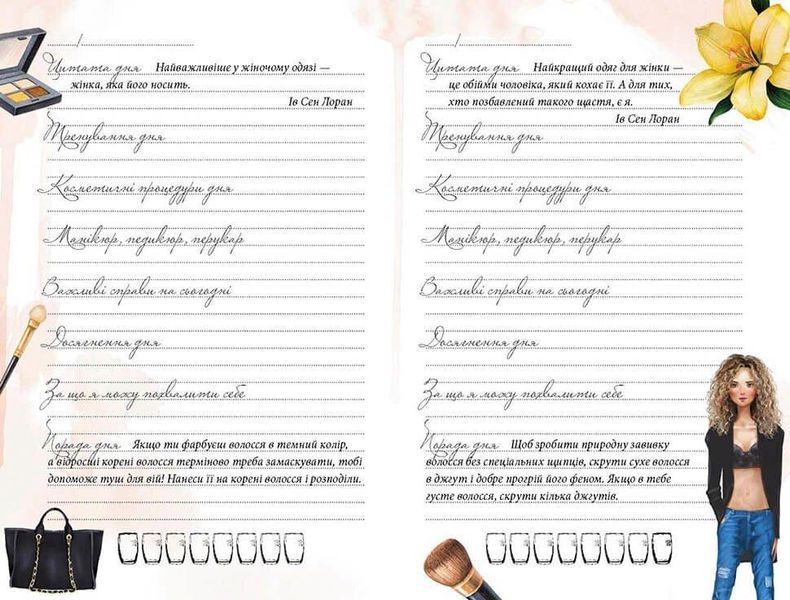 Цитата дня Найважливіше у жіночому одязі —
жінка, яка його носить.
Ів Сен Лоран
Тренування дня
Косметичні процедури дня
Манікюр, педикюр, перукар
Важливі справи на сьогодні
Досягнення дня
За що я можу похвалити себе
Порада дня Якщо ти фарбуєш волосся в темний колір,
а відрослі корені волосся терміново треба замаскувати, тобі
допоможе туш для вій! Нанеси її на корені волосся і розподіли.
Цитата дня Найкращий одяг для жінки —
це обійми чоловіка, який кохає її. А для тих,
хто позбавлений такого щастя, є я.
Ів Сен Лоран
Тренування дня
Косметичні процедури дня
Манікюр, педикюр, перукар
Важливі справи на сьогодні
Досягнення дня
За що я можу похвалити себе
Порада дня Щоб зробити природну завивку
волосся без спеціальних щипців, скрути сухе волосся
в джгут і добре прогрій його феном. Якщо в тебе
густе волосся, скрути кілька джгутів.